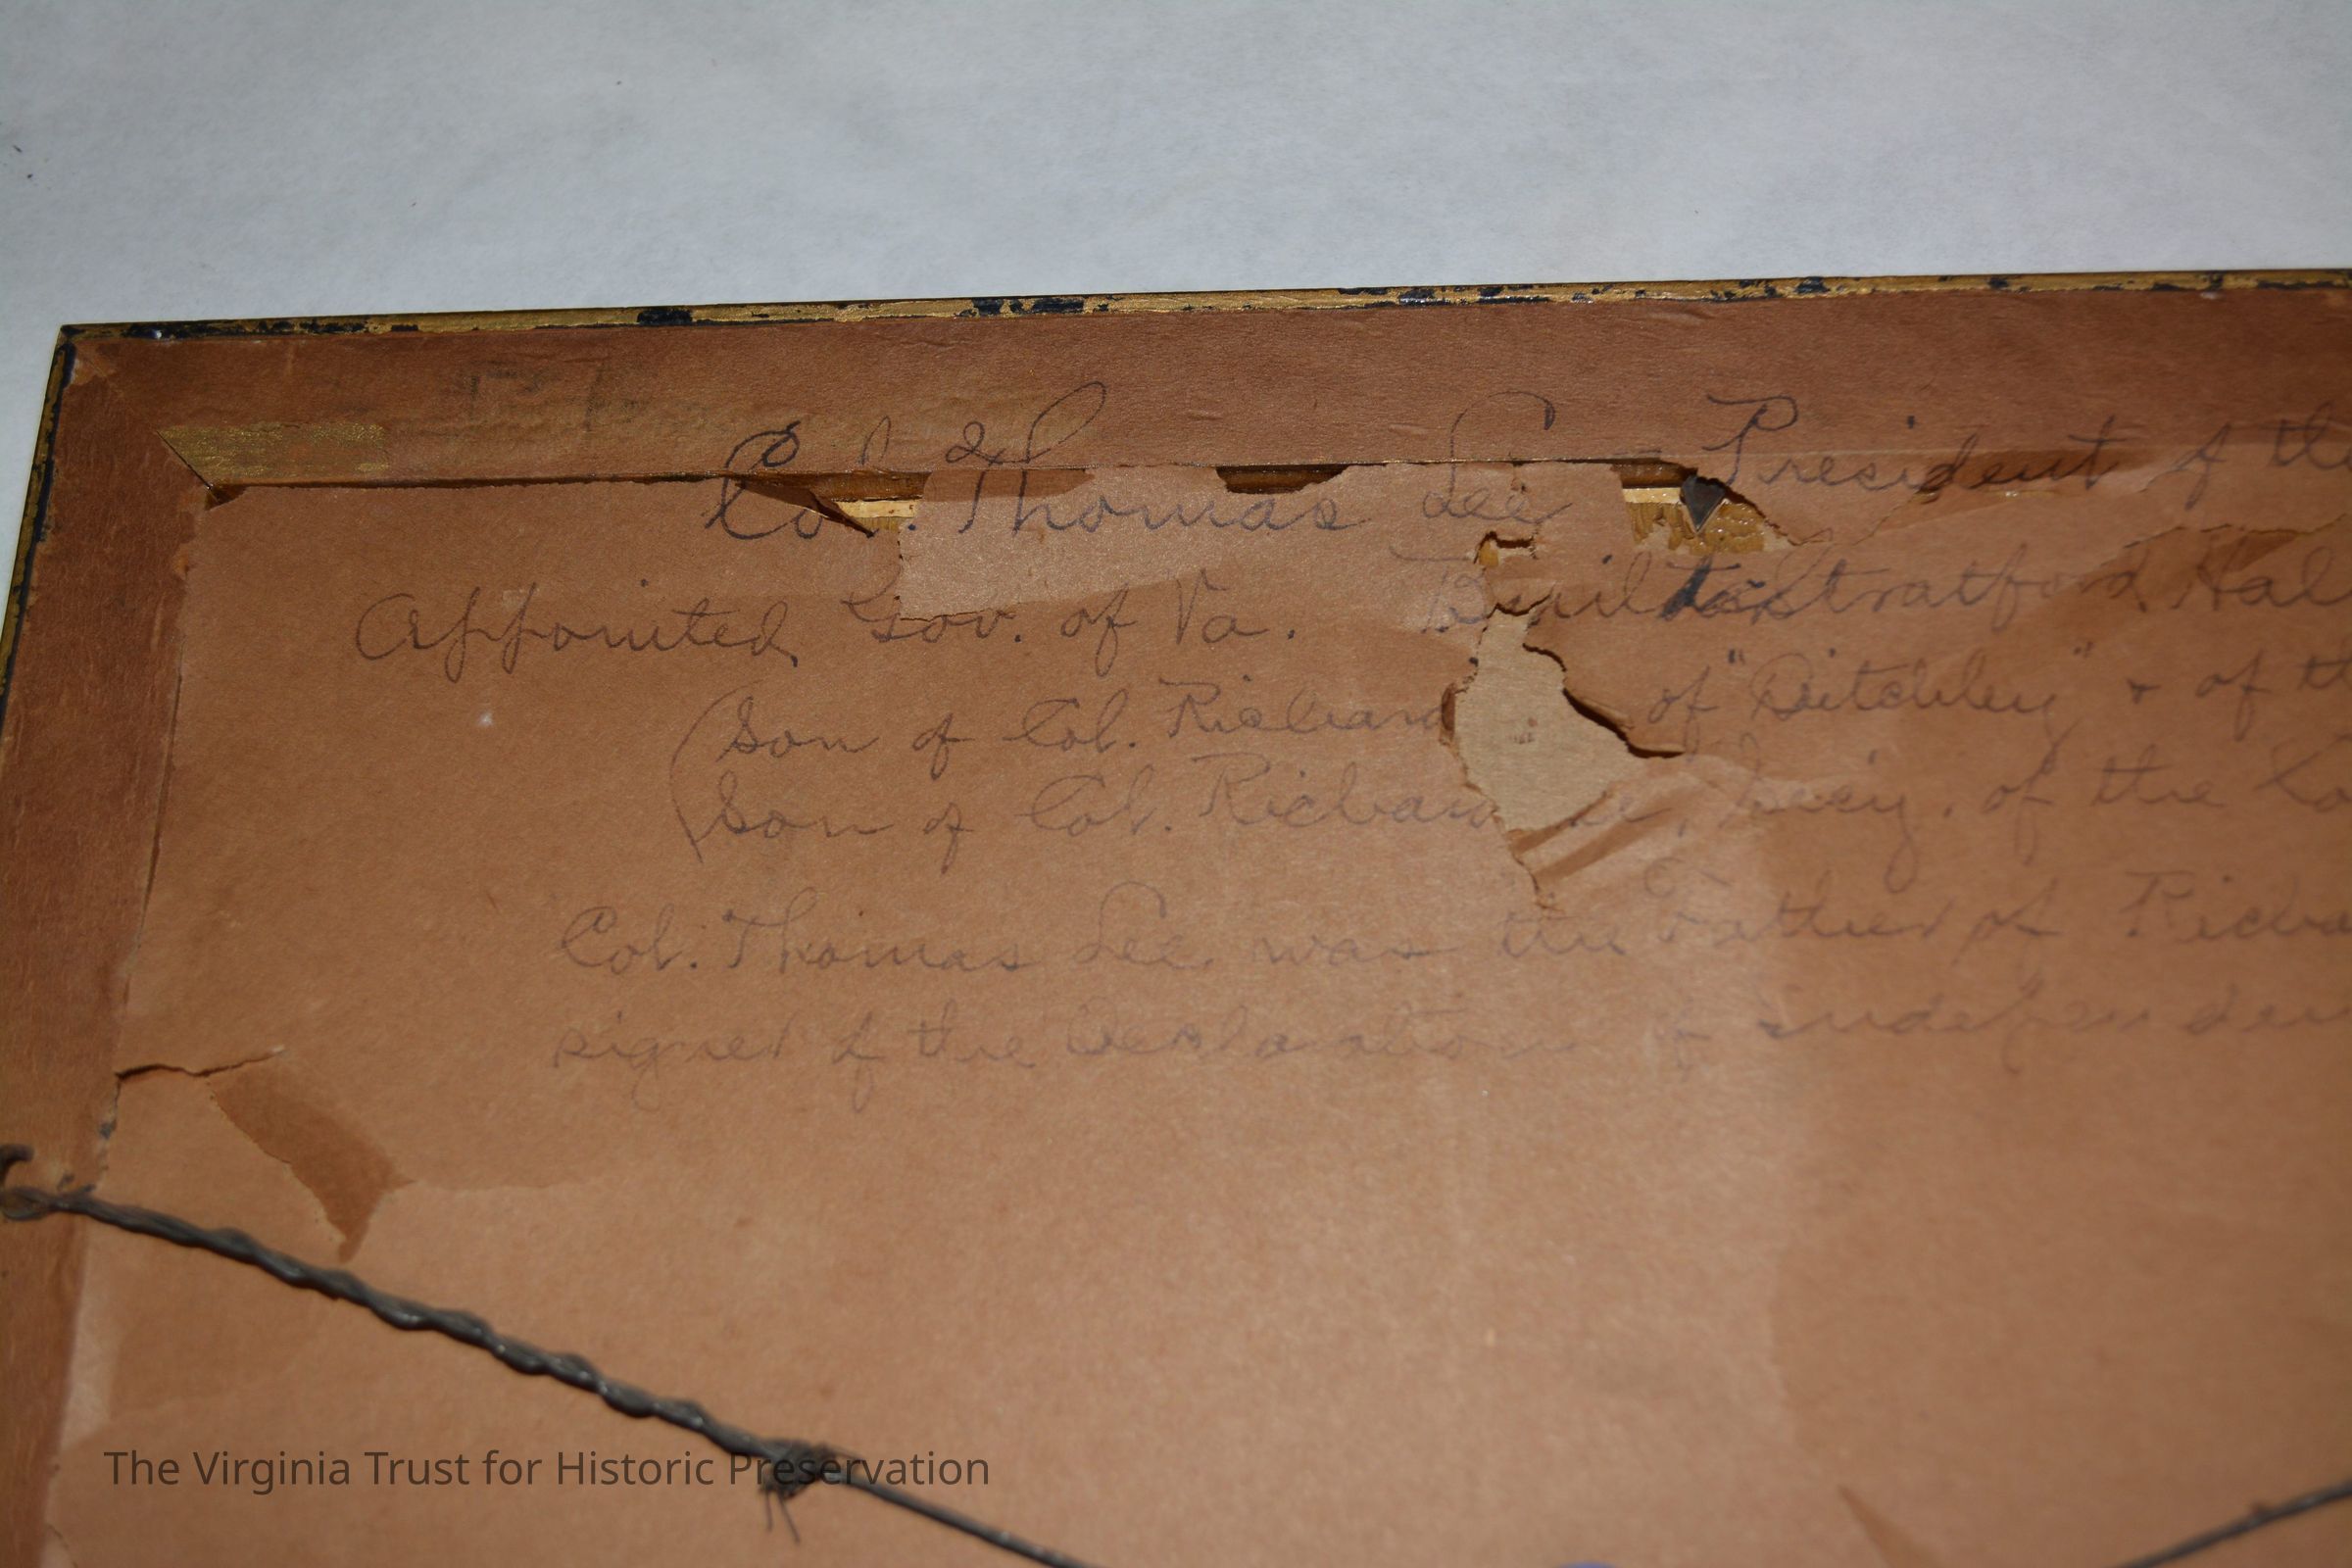 Col. Thomas Lee President of the
Appointed Gov. of Va. Built Stratford Hal
(Son of Col. Richard of "Ditchley" & of th
(Son of Col. Richard of the Co
Col. Thomas Lee was the Father of Richa
signer of the Declaration of independen
The Virginia Trust for Historic Preservation